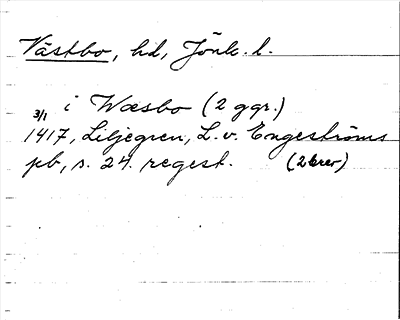 Västbo, hd, Jönk. l.
i Wæsbo (2 ggr.)
3/1
1417, Liljegren, L. v. Engeströms
pb, s. 24. regest. (2 brev)